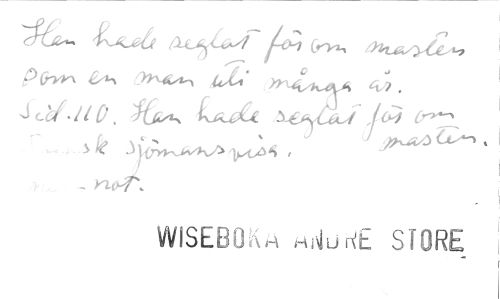 Han hade seglat för om masten
som en man uti många år.
Sid. 110. Han hade seglat för om
masten.
sjömansvisa.
not.
WISEBOKA ANDRE STORE